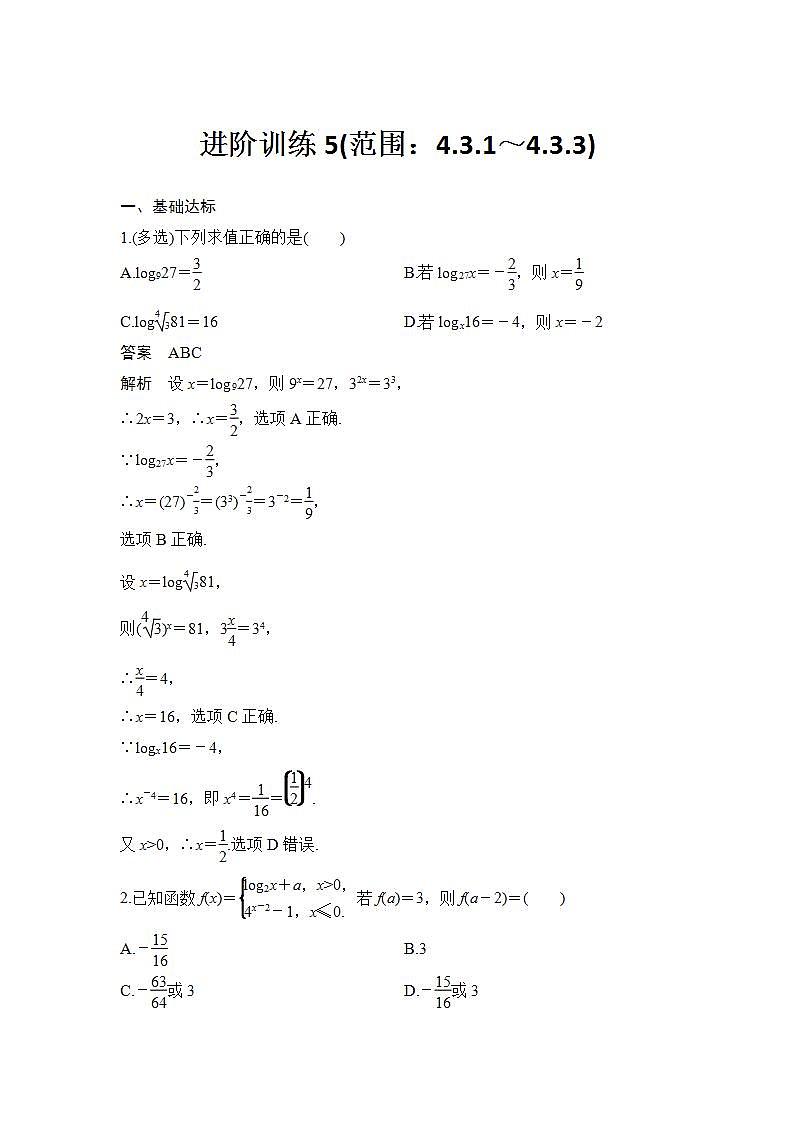 进阶训练5(范围：4.3.1～4.3.3)
一、基础达标
1.(多选)下列求值正确的是(　　)
A.log₉27＝3/2　B.若log₂₇x＝－2/3，则x＝1/9
C.log∜3 81＝16　D.若logₓ16＝－4，则x＝－2
答案　ABC
解析　设x＝log₉27，则9ˣ＝27，3²ˣ＝3³，
∴2x＝3，∴x＝3/2，选项A正确.
∵log₂₇x＝－2/3，
∴x＝(27)^(－2/3)＝(3³)^(－2/3)＝3⁻²＝1/9，
选项B正确.
设x＝log∜3 81，
则(∜3)ˣ＝81，3^(x/4)＝3⁴，
∴x/4＝4，
∴x＝16，选项C正确.
∵logₓ16＝－4，
∴x⁻⁴＝16，即x⁴＝1/16＝(1/2)⁴.
又x>0，∴x＝1/2.选项D错误.
2.已知函数f(x)＝{log₂x＋a，x>0，4ˣ⁻²－1，x≤0. 若f(a)＝3，则f(a－2)＝(　　)
A.－15/16　B.3
C.－63/64或3　D.－15/16或3